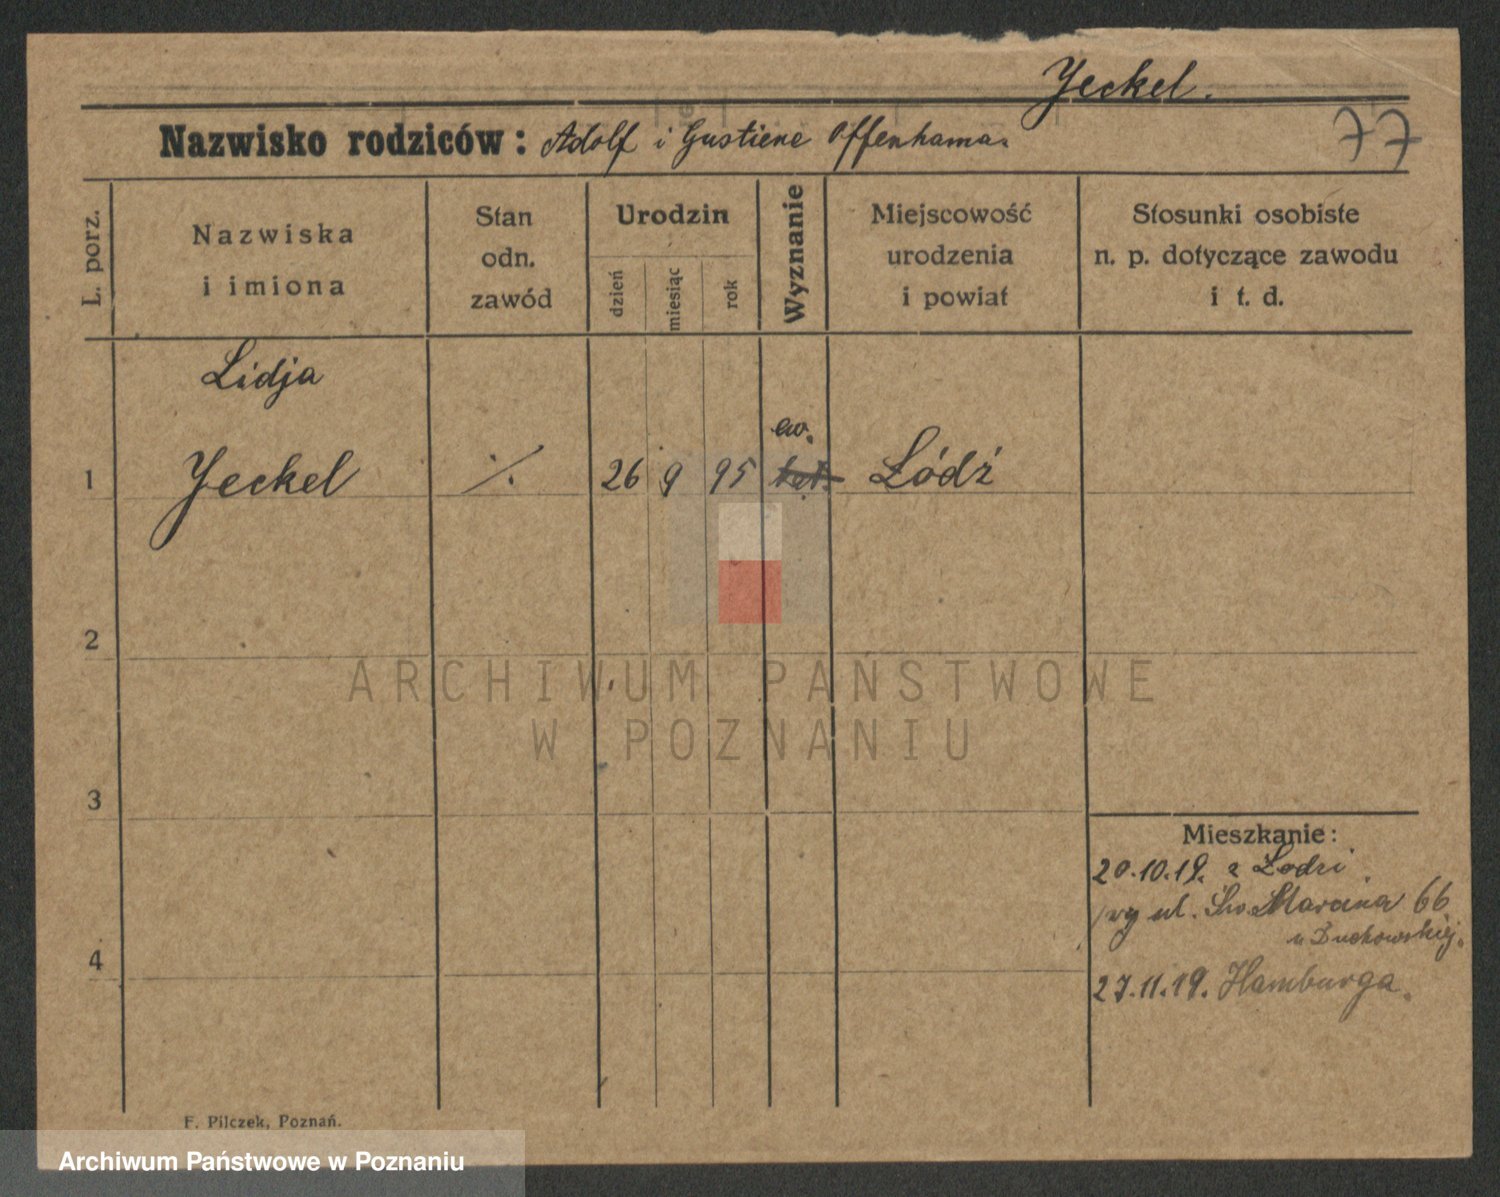 Yeckel.
Nazwisko rodziców: Adolf i Gustiene Offenhama.
77
L. porz.
Nazwiska
i imiona
Stan
odn.
zawód
Urodzin
dzień
miesiąc
rok
Wyznanie
Miejscowość
urodzenia
i powiat
Stosunki osobiste
n. p. dotyczące zawodu
i t. d.
Lidja
ew.
1 Yeckel ./. 26 9 95 kat. Łódź
2
ARCHIWUM PAŃSTWOWE
W POZNANIU
3
Mieszkanie:
20.10.19. z Łodzi
ul. Św Marcina 66
u Buchowskiej.
4
27.11.19. Hamburga.
F. Pilczek, Poznań.
Archiwum Państwowe w Poznaniu